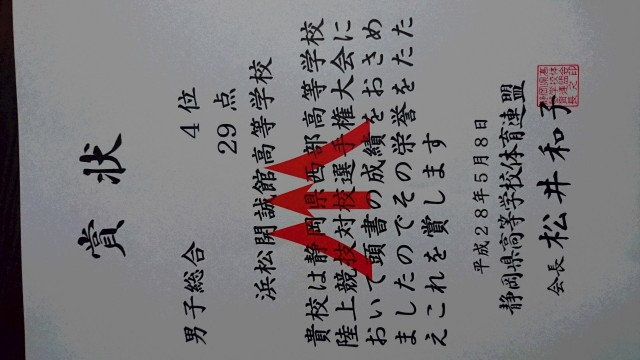 賞状
男子総合 4位
29点
浜松開誠館高等学校
貴校は静岡県西部高等学校
陸上競技対校選手権大会に
おいて頭書の成績をおさめ
ましたのでその栄誉をたた
えこれを賞します
平成28年5月8日
静岡県高等学校体育連盟
会長 松井和子